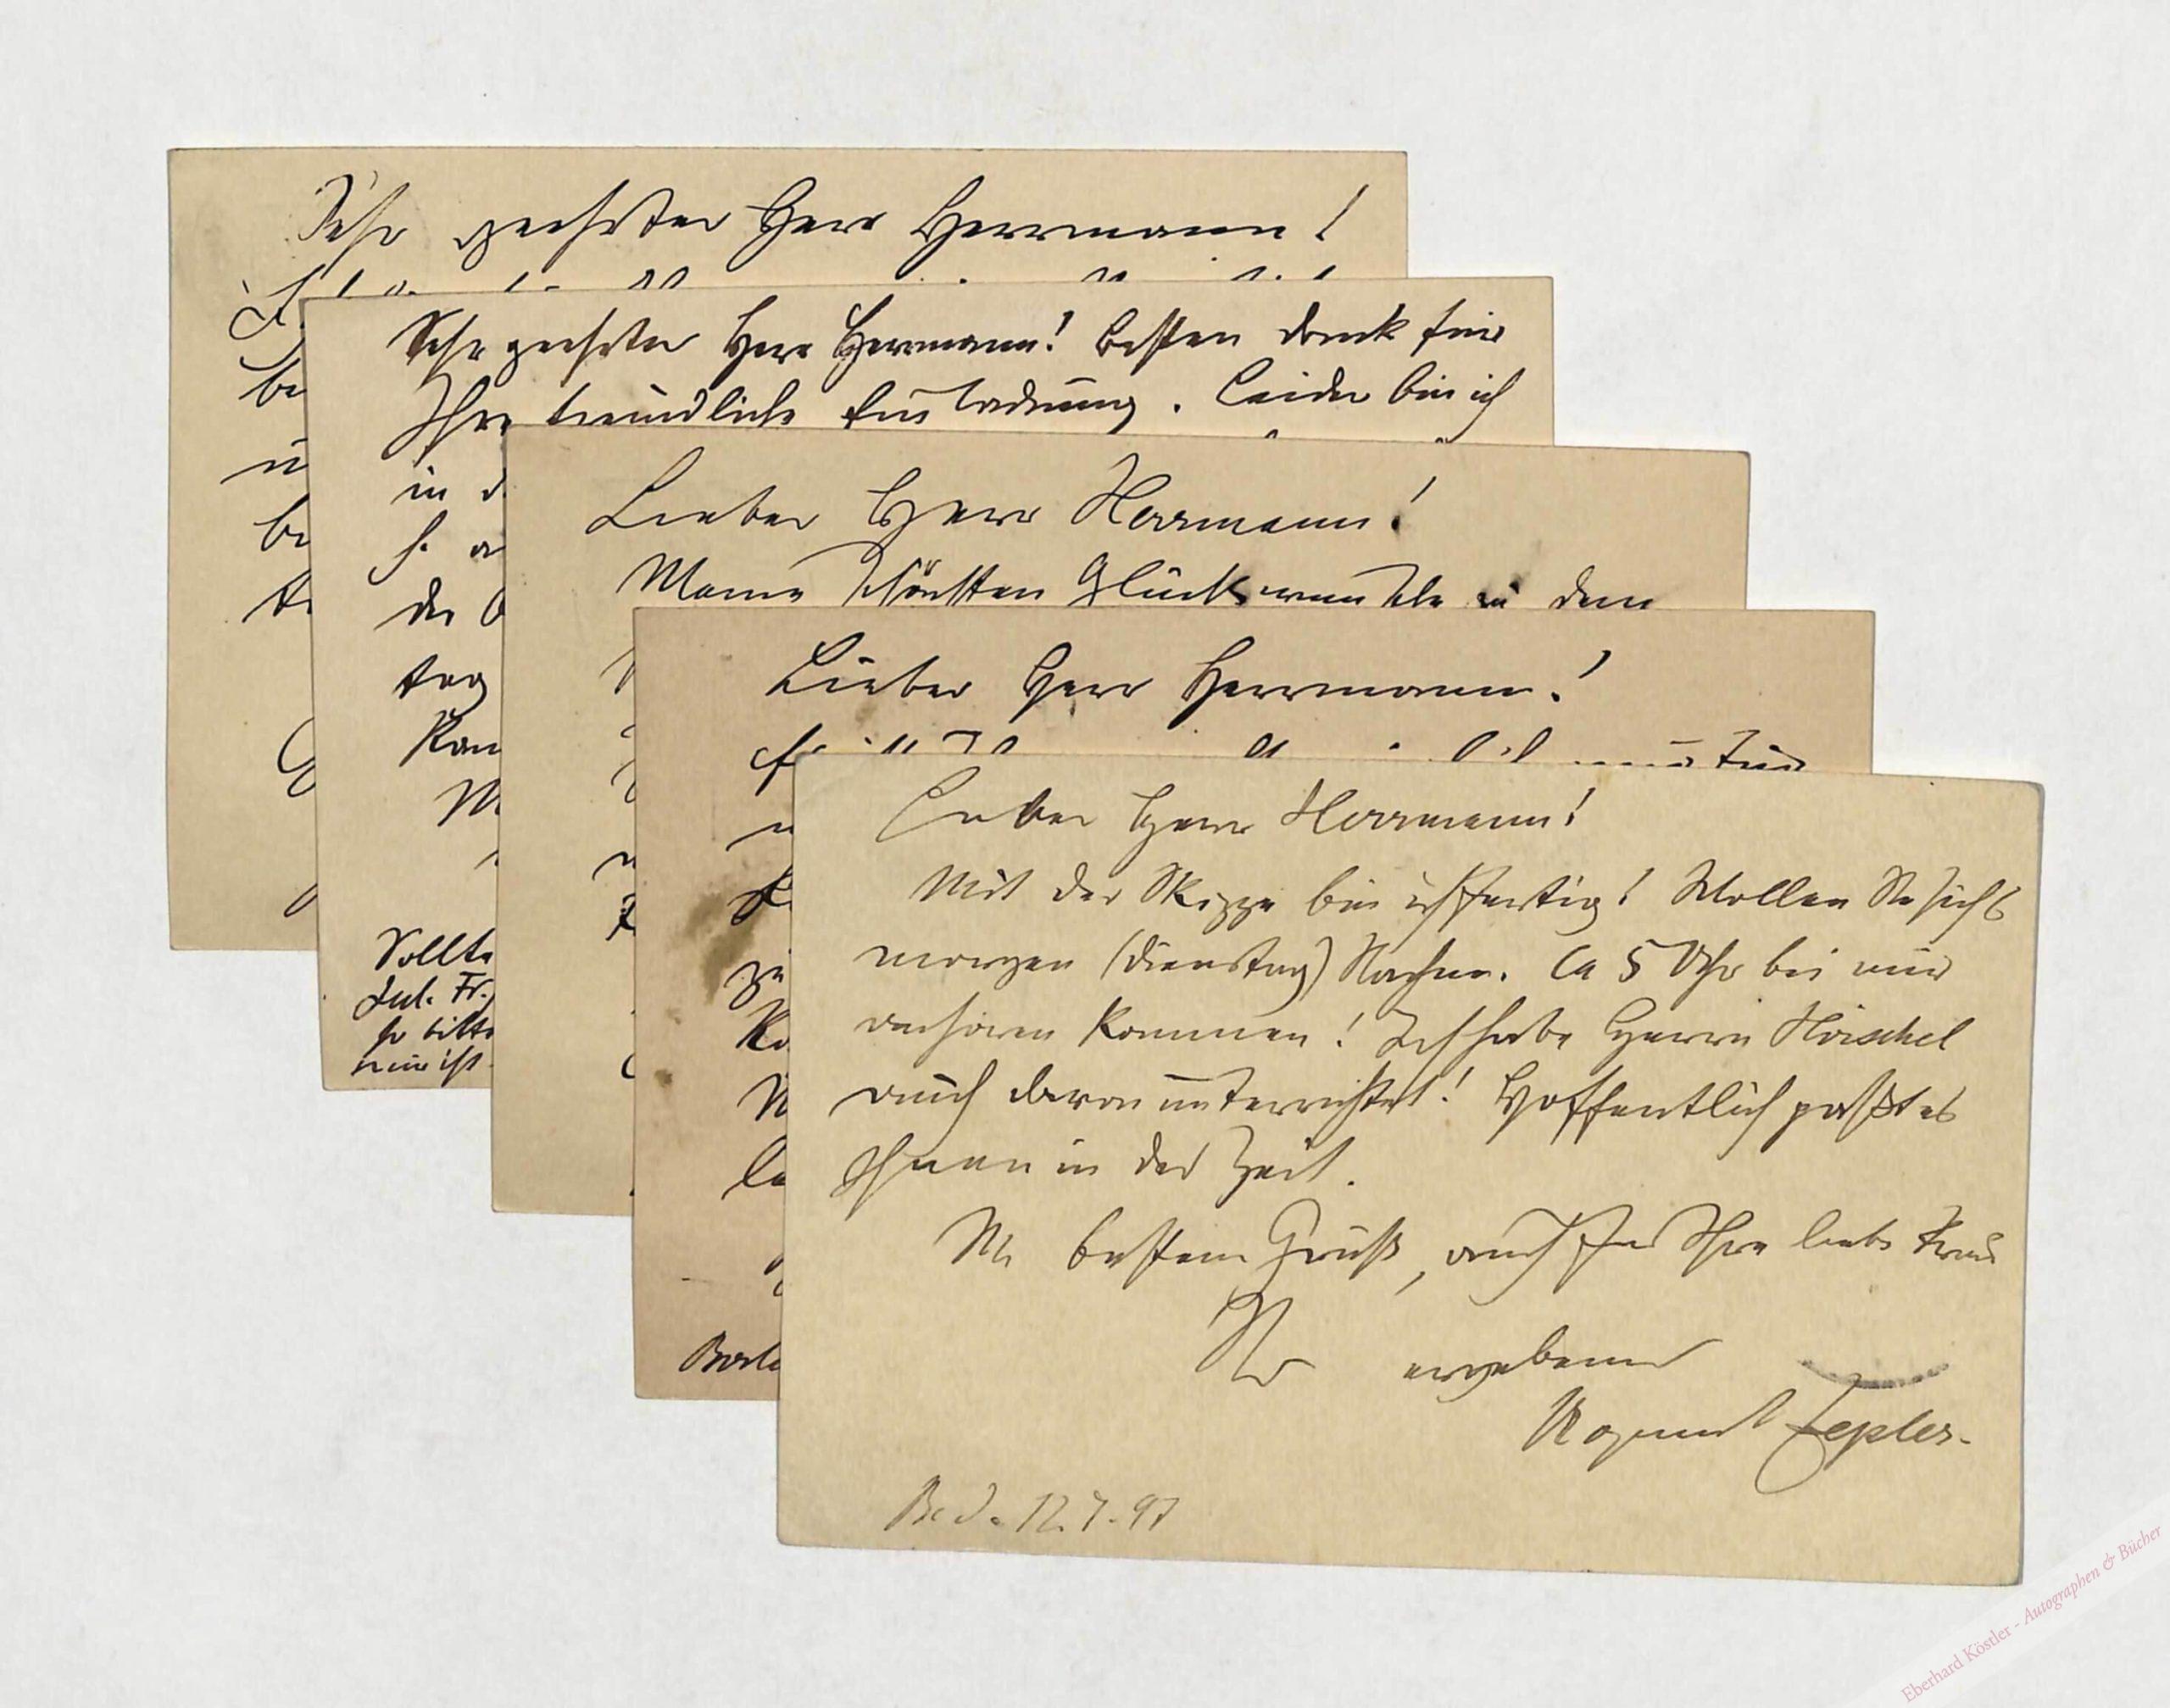 Sehr geehrter Herr Herrmann!
be
u
be
Sehr geehrter Herr Herrmann! Besten Dank für
Ihre freundliche Einladung. Leider bin ich
in d
der
tag
Kan
M
Sollte
Jul. Fr.
so bitte
mir ist
Lieber Herr Herrmann!
Meine schönsten Glückwünsche zu dem
Lieber Herr Herrmann!
zu
Ko
M
le
Berli
Lieber Herr Herrmann!
Mit der Skizze bin ich fertig! Wollen Sie sich's
morgen (Dienstag) Nachm. Ca 5 Uhr bei mir
anhören kommen! Ich habe Herrn Hörschel
auch davon unterrichtet! Hoffentlich paßt es
Ihnen in der Zeit.
M. bestem Gruß, auch für Ihre liebe Frau
Ihr ergebener
Bogumil Zepler.
Bed. 12.7.97
Eberhard Köstler - Autographen & Bücher